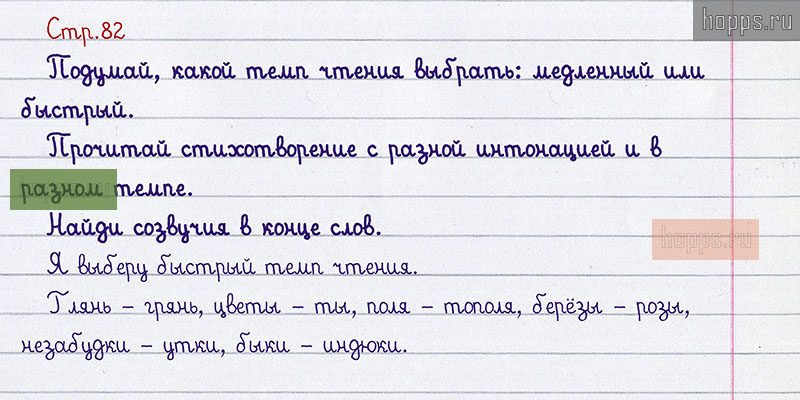 hopps.ru
Стр.82
Подумай, какой темп чтения выбрать: медленный или
быстрый.
Прочитай стихотворение с разной интонацией и в
разном темпе.
Найди созвучия в конце слов.
hopps.ru
Я выберу быстрый темп чтения.
Глянь – грянь, цветы – ты, поля – тополя, берёзы – розы,
незабудки – утки, быки – индюки.